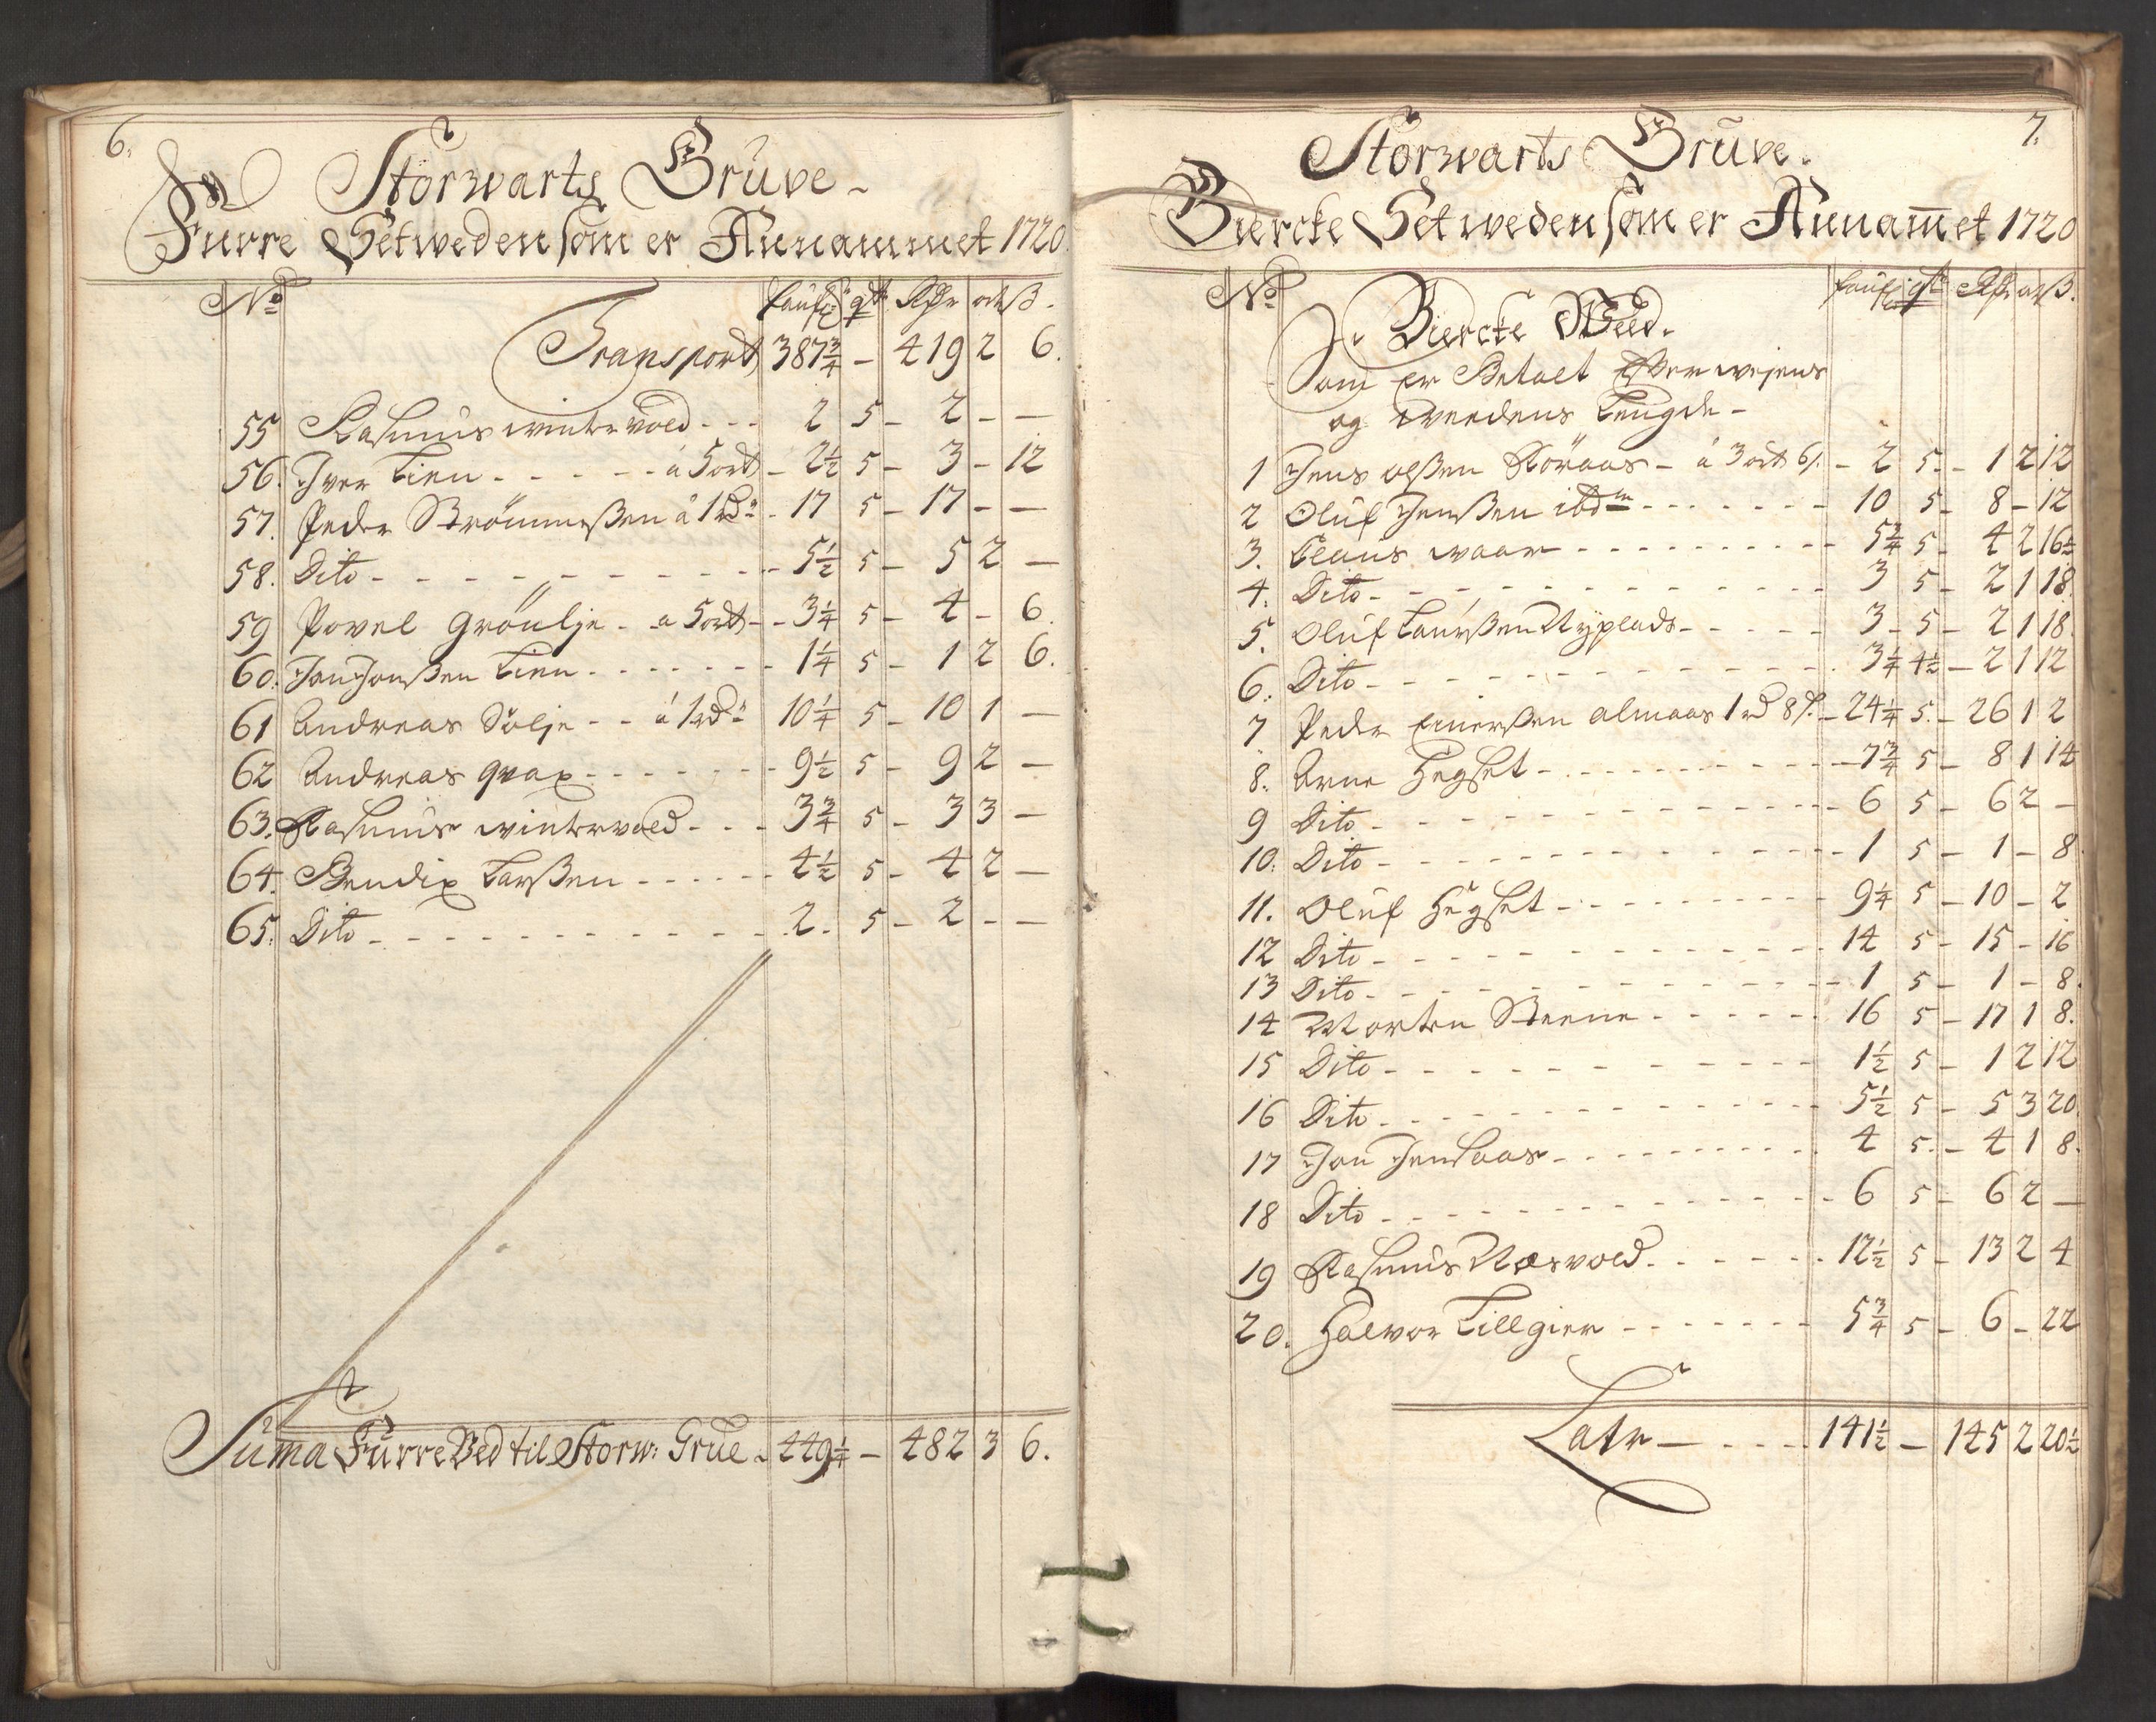 6.
Storwarts Grüve
Furre Setweden som er Annammet 1720.
No fauf: qt Rdr ort ß.
Transport 387¾ - 419 2 6.
55 Rasmus wintervold - - - 2 5 - 2 - -
56. Iver Lien - - - - - à 5 ort - 2½ 5 - 3 - 12
57. Peder Strömmeßen à 1 rd: - 17 5 - 17 - -
58. Dito - - - - - - - - - - 5½ 5 - 5 2 -
59 Povel Gröulje - à 5 ort - - 3¼ 5 - 4 - 6.
60. Jon Jonßen Lien - - - - - - - 1¼ 5 - 1 2 6.
61 Andreas Sölje - - à 1 rd: 10¼ 5 - 10 1 -
62 Andreas qvax - - - - - - - 9½ 5 - 9 2 -
63. Rasmus wintervold - - - 3¾ 5 - 3 3 -
64. Bendix Larßen - - - - - - 4½ 5 - 4 2 -
65. Dito - - - - - - - - - - - 2. 5 - 2 - -
Suma Furre Ved til Storw: Grue - 449¼ - 482 3 6.
7.
Storwarts Grüve.
Biercke Setweden som er Annam̄et 1720
No fauf: qt Rdr ort ß.
Biercke Weed.
Som er Betalt Efter weyens
og weedens Lengde -
1 Jens olßen Röraas - à 3 ort 6 ß. - 2 5 - 1 2 12
2 Oluf Jenßen ibdm - - - - - - - 10 5 - 8 - 12
3. Claus waar - - - - - - - - - - 5¾ 5 - 4 2 16½
4. Dito - - - - - - - - - - - - 3 5 - 2 1 18
5. Oluf Laurßen Nyplads - - - - - 3 - 5 - 2 1 18.
6. Dito - - - - - - - - - - - - 3¼ 4½ - 2 1 12
7 Peder Einerßen Almaas 1 rd 8 ß. - 24¼ 5 - 26 1 2
8. Arne Hegset - - - - - - - - - - 7¾ 5 - 8 1 14
9 Dito - - - - - - - - - - - - 6 5 - 6 2 -
10. Dito - - - - - - - - - - - - 1 5 - 1 - 8
11. Oluf Hegset - - - - - - - - - - 9¼ 5 - 10 - 2
12 Dito - - - - - - - - - - - - 14 5 - 15 - 16
13 Dito - - - - - - - - - - - - 1 5 - 1 - 8.
14 Morten Steene - - - - - - - 16 5 - 17 1 8.
15 Dito - - - - - - - - - - - - 1½ 5 - 1 2 12
16 Dito - - - - - - - - - - - - 5½ 5 - 5 3 20
17 Jon Jensaas - - - - - - - - - - 4 5 - 4 1 8.
18 Dito - - - - - - - - - - - - 6 5 - 6 2 -
19 Rasmus Næsvold - - - - - - 12½ 5 - 13 2 4
20. Halvor Lillgien - - - - - - - 5¾ 5 - 6 - 22
Latr - - - - 141½ - 145 2 20½